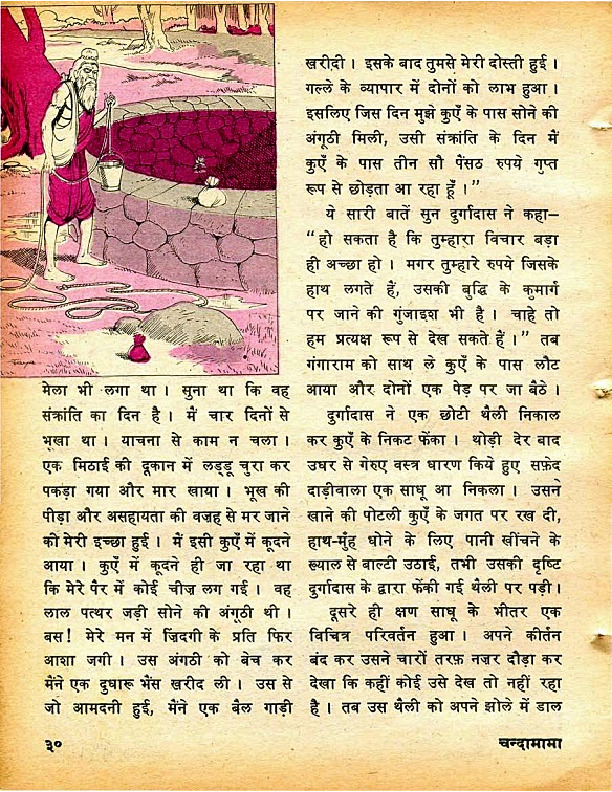 मेला भी लगा था। सुना था कि वह
संक्रांति का दिन है। मैं चार दिनों से
भूखा था। याचना से काम न चला।
एक मिठाई की दूकान में लड्डू चुरा कर
पकड़ा गया और मार खाया। भूख की
पीड़ा और असहायता की वजह से मर जाने
की मेरी इच्छा हुई। मैं इसी कुएँ में कूदने
आया। कुएँ में कूदने ही जा रहा था
कि मेरे पैर में कोई चीज़ लग गई। वह
लाल पत्थर जड़ी सोने की अंगूठी थी।
बस! मेरे मन में ज़िदगी के प्रति फिर
आशा जगी। उस अंगठी को बेच कर
मैंने एक दुधारू भैंस खरीद ली। उस से
जो आमदनी हुई, मैंने एक बैल गाड़ी
ख़रीदी। इसके बाद तुमसे मेरी दोस्ती हुई।
गल्ले के व्यापार में दोनों को लाभ हुआ।
इसलिए जिस दिन मुझे कुएँ के पास सोने की
अंगूठी मिली, उसी संक्रांति के दिन मैं
कुएँ के पास तीन सौ पैंसठ रुपये गुप्त
रूप से छोड़ता आ रहा हूँ।”
ये सारी बातें सुन दुर्गादास ने कहा—
“हो सकता है कि तुम्हारा विचार बड़ा
ही अच्छा हो। मगर तुम्हारे रुपये जिसके
हाथ लगते हैं, उसकी बुद्धि के कुमार्ग
पर जाने की गुंजाइश भी है। चाहे तो
हम प्रत्यक्ष रूप से देख सकते हैं।” तब
गंगाराम को साथ ले कुएँ के पास लौट
आया और दोनों एक पेड़ पर जा बैठे।
दुर्गादास ने एक छोटी थैली निकाल
कर कुएँ के निकट फेंका। थोड़ी देर बाद
उधर से गेरुए वस्त्र धारण किये हुए सफ़ेद
दाढ़ीवाला एक साधू आ निकला। उसने
खाने की पोटली कुएँ के जगत पर रख दी,
हाथ-मुँह धोने के लिए पानी खींचने के
ख्याल से बाल्टी उठाई, तभी उसकी दृष्टि
दुर्गादास के द्वारा फेंकी गई थैली पर पड़ी।
दूसरे ही क्षण साधू के भीतर एक
विचित्र परिवर्तन हुआ। अपने कीर्तन
बंद कर उसने चारों तरफ़ नज़र दौड़ा कर
देखा कि कहीं कोई उसे देख तो नहीं रहा
है। तब उस थैली को अपने झोले में डाल
३०
चन्दामामा